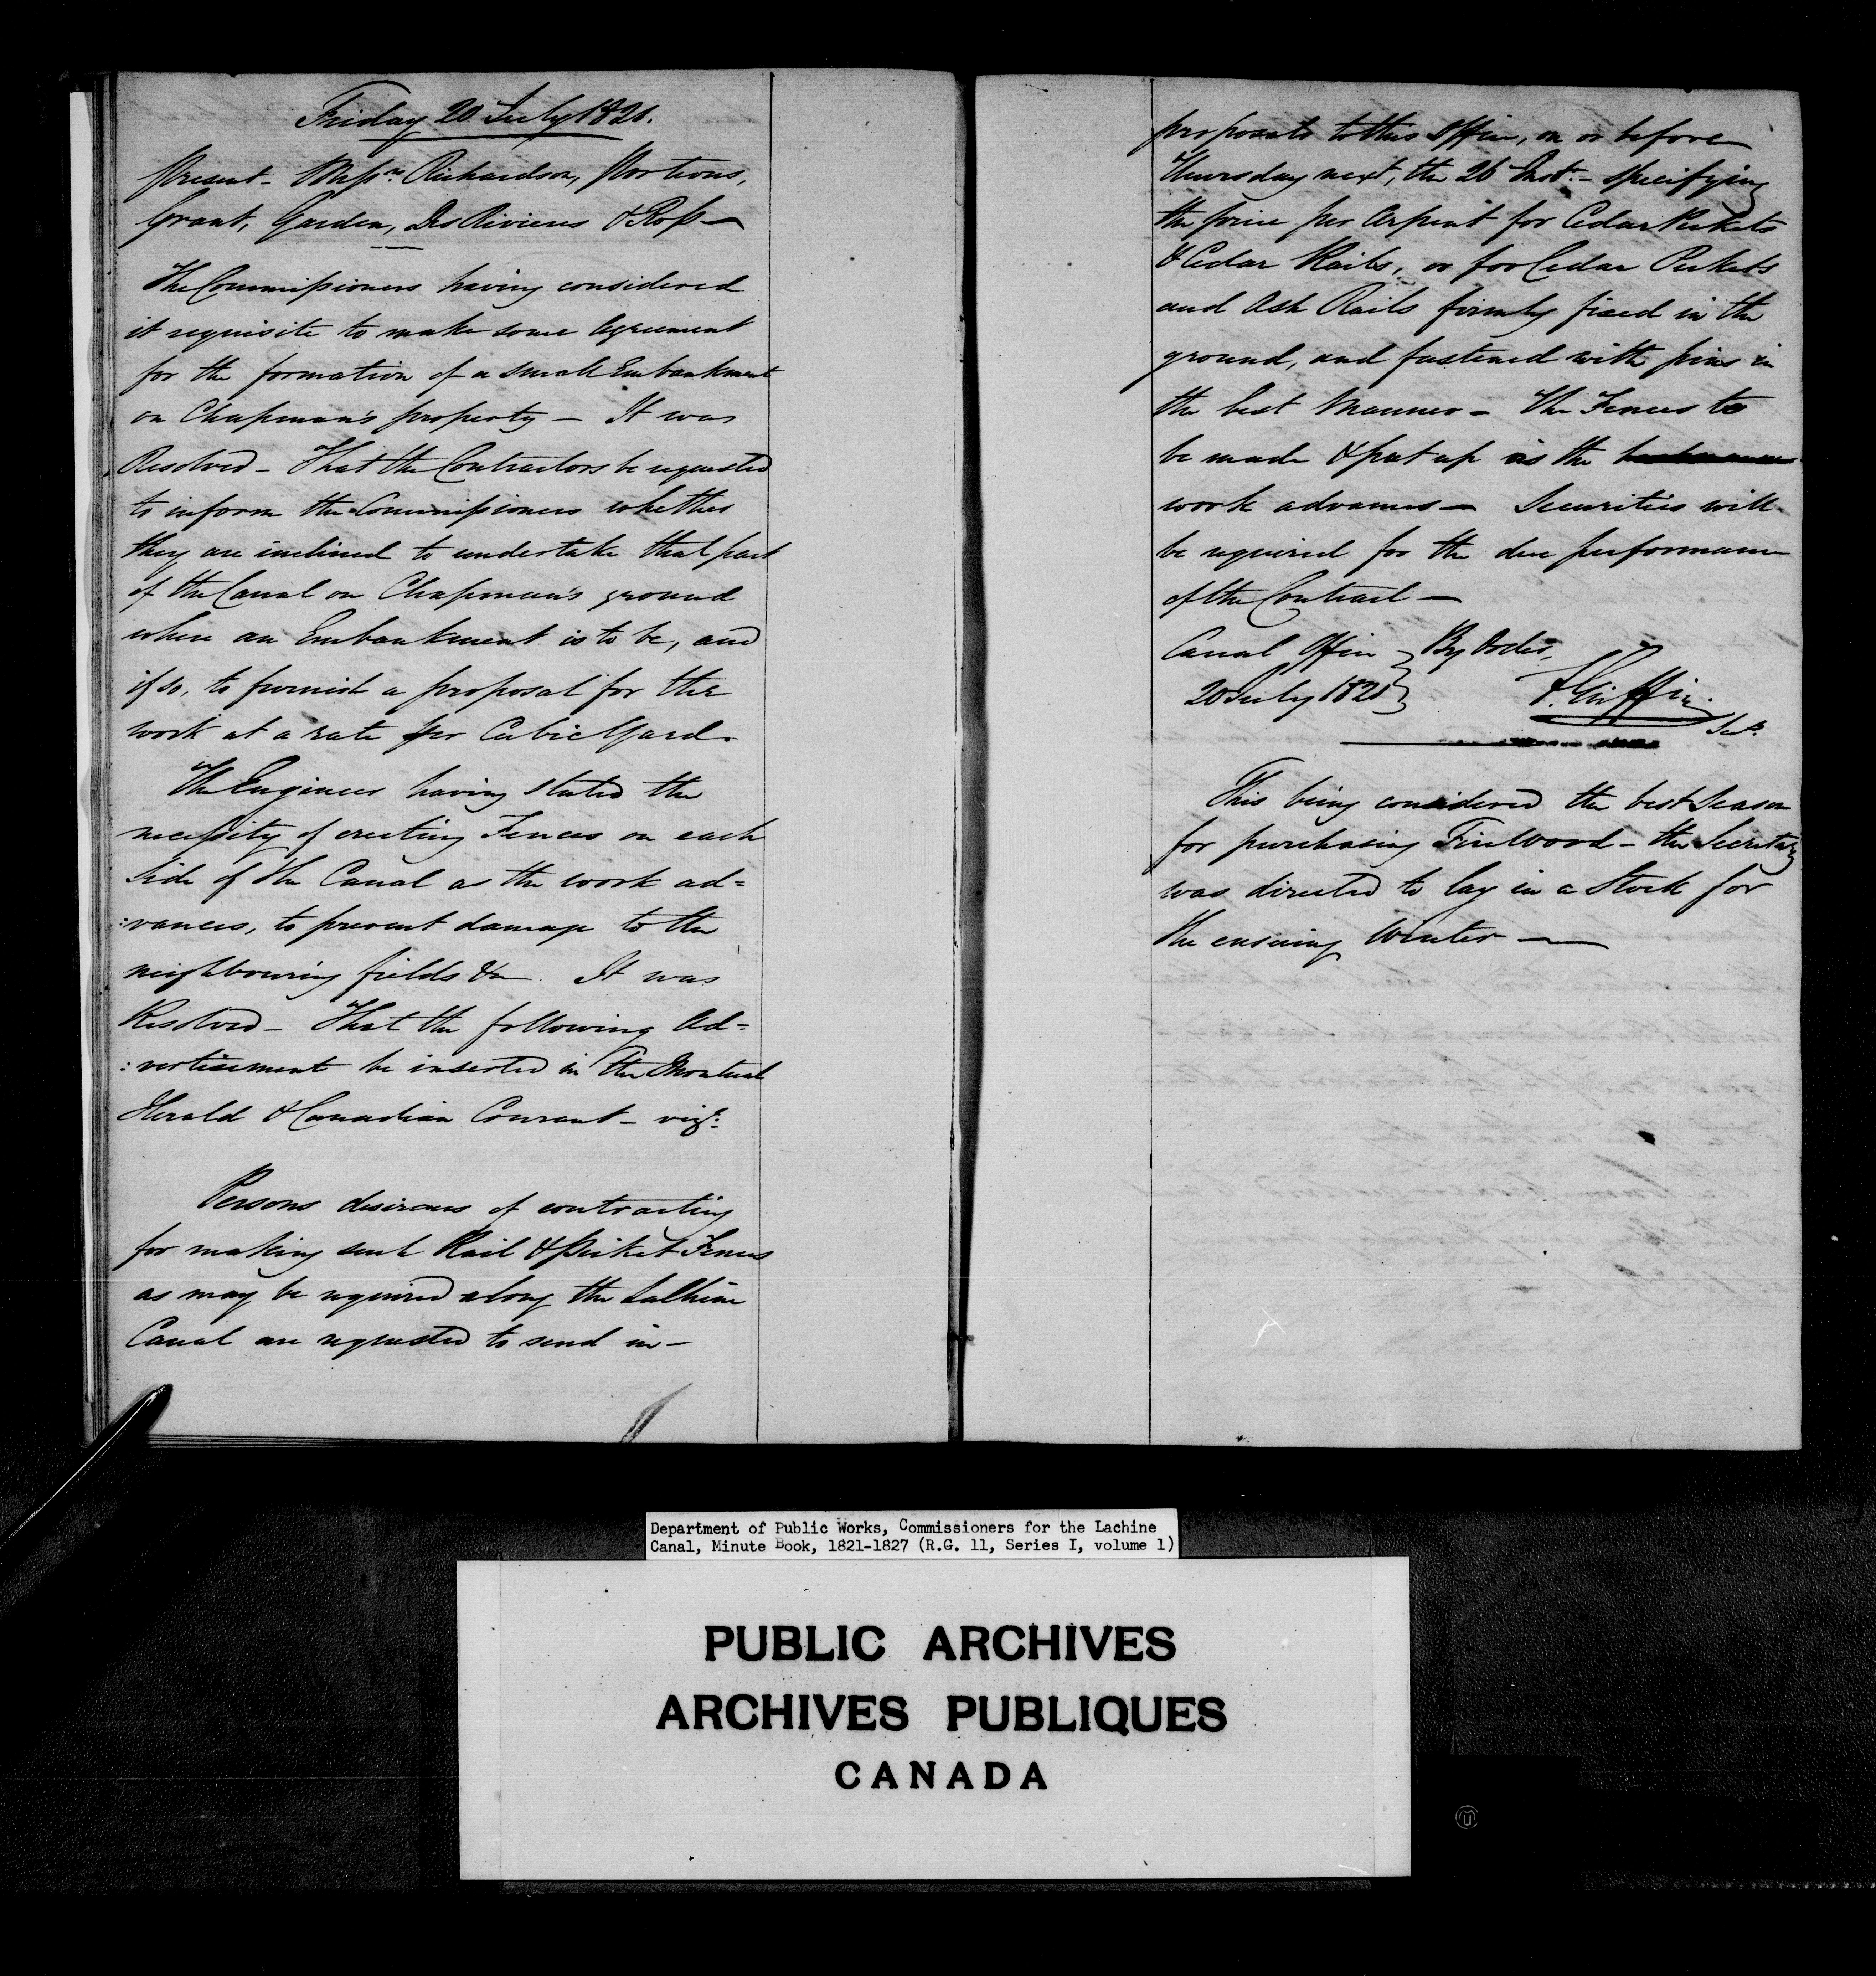 Friday 20 July 1821.
Present - Messrs. Richardson, Porteous,
Grant, Garden, DesRivieres & Ross —
The Commissioners having considered
it requisite to make some Agreement
for the formation of a small Embankment
on Chapman's property — It was
Resolved - That the Contractors be requested
to inform the Commissioners whether
they are inclined to undertake that part
of the Canal on Chapman's ground
where an Embankment is to be, and
if so, to furnish a proposal for the
work at a rate per Cubic Yard.
The Engineer having stated the
necessity of erecting Fences on each
side of the Canal as the work ad=
:vances, to prevent damage to the
neighbouring fields &c. It was
Resolved - That the following Ad=
:vertisement be inserted in the Montreal
Herald & Canadian Courant - vizt:
Persons desirous of contracting
for making such Rail & Picket Fences
as may be required along the Lachine
Canal are requested to send in -
proposals to this Office, on or before
Thursday next, the 26 Inst. - specifying
the price per Arpent for Cedar Pickets
& Cedar Rails, or for Cedar Pickets
and Ash Rails firmly fixed in the
ground, and fastened with pins in
the best Manner - The Fences to
be made & put up as the
work advances — Securities will
be required for the due performance
of the Contract —
Canal Office } By Order,
20 July 1821 } F. Griffin
Secy.
This being considered the best Season
for purchasing Fire Wood - the Secretary
was directed to lay in a Stock for
the ensuing Winter —
Department of Public Works, Commissioners for the Lachine
Canal, Minute Book, 1821-1827 (R.G. 11, Series I, volume 1)
PUBLIC ARCHIVES
ARCHIVES PUBLIQUES
CANADA